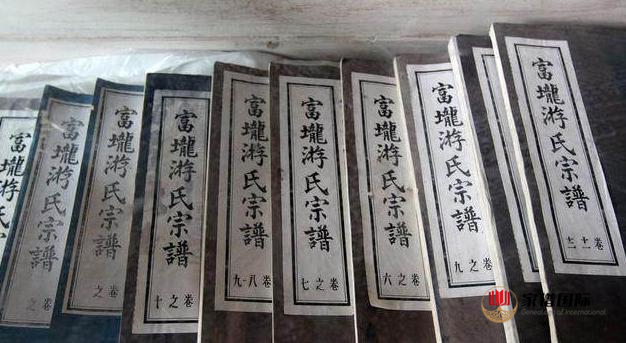 富壠游氏宗譜
卷之
富壠游氏宗譜
卷之
富壠游氏宗譜
卷之十
富壠游氏宗譜
卷八-九
富壠游氏宗譜
卷之七
富壠游氏宗譜
卷之六
富壠游氏宗譜
卷之九
富壠游氏宗譜
卷
家谱国际
Genealogy of International